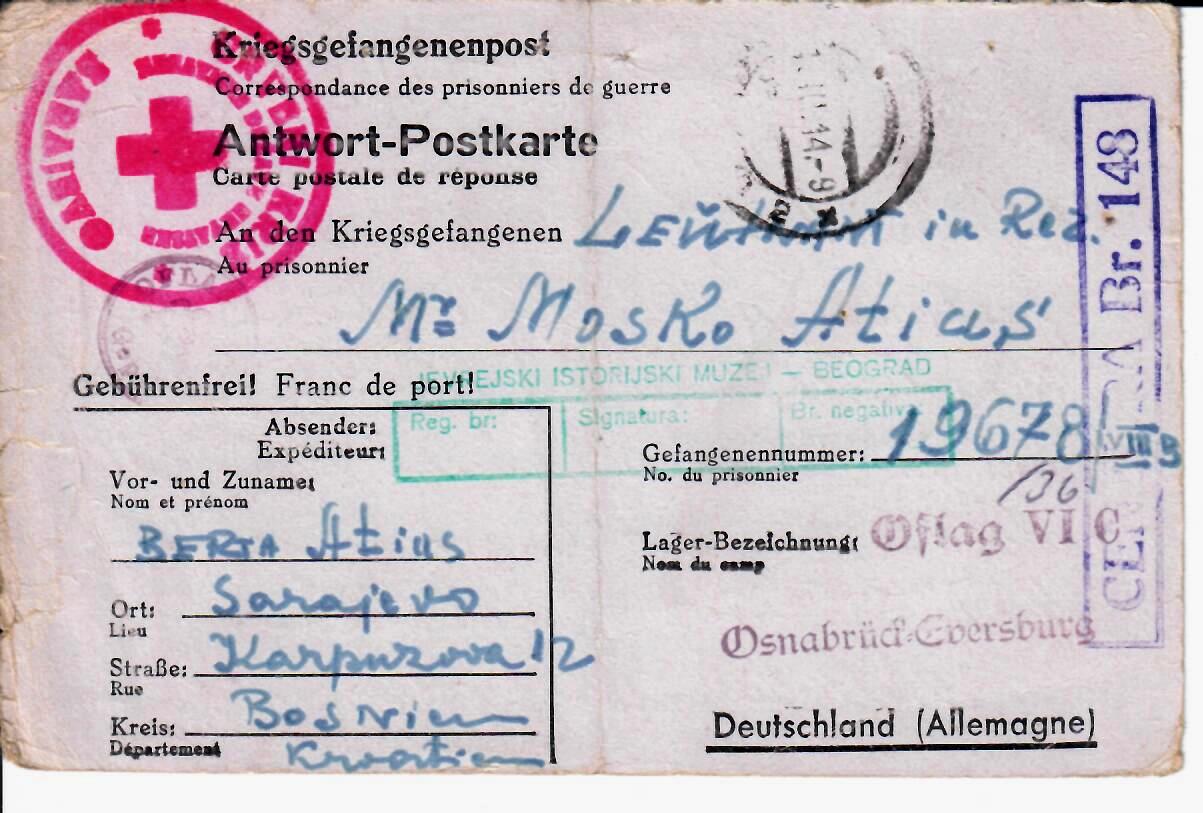 Kriegsgefangenenpost
Correspondance des prisonniers de guerre
Antwort-Postkarte
Carte postale de réponse
An den Kriegsgefangenen Leutnant in Rez.
Au prisonnier
Mr Mosko Atias
Gebührenfrei! Franc de port!
JEVREJSKI ISTORIJSKI MUZEJ — BEOGRAD
Reg. br: Signatura: Br. negativa
Absender:
Expéditeur:
Vor- und Zuname:
Nom et prénom
BERTA Atias
Ort: Sarajevo
Lieu
Straße: Karpuzova 12
Rue
Kreis: Bosnien
Département Kroatien
Gefangenennummer: 19678/VIII B
No. du prisonnier
/36
Lager-Bezeichnung: Oflag VI C
Nom du camp
Osnabrück-Eversburg
Deutschland (Allemagne)
Br. 148
SARAJEVO